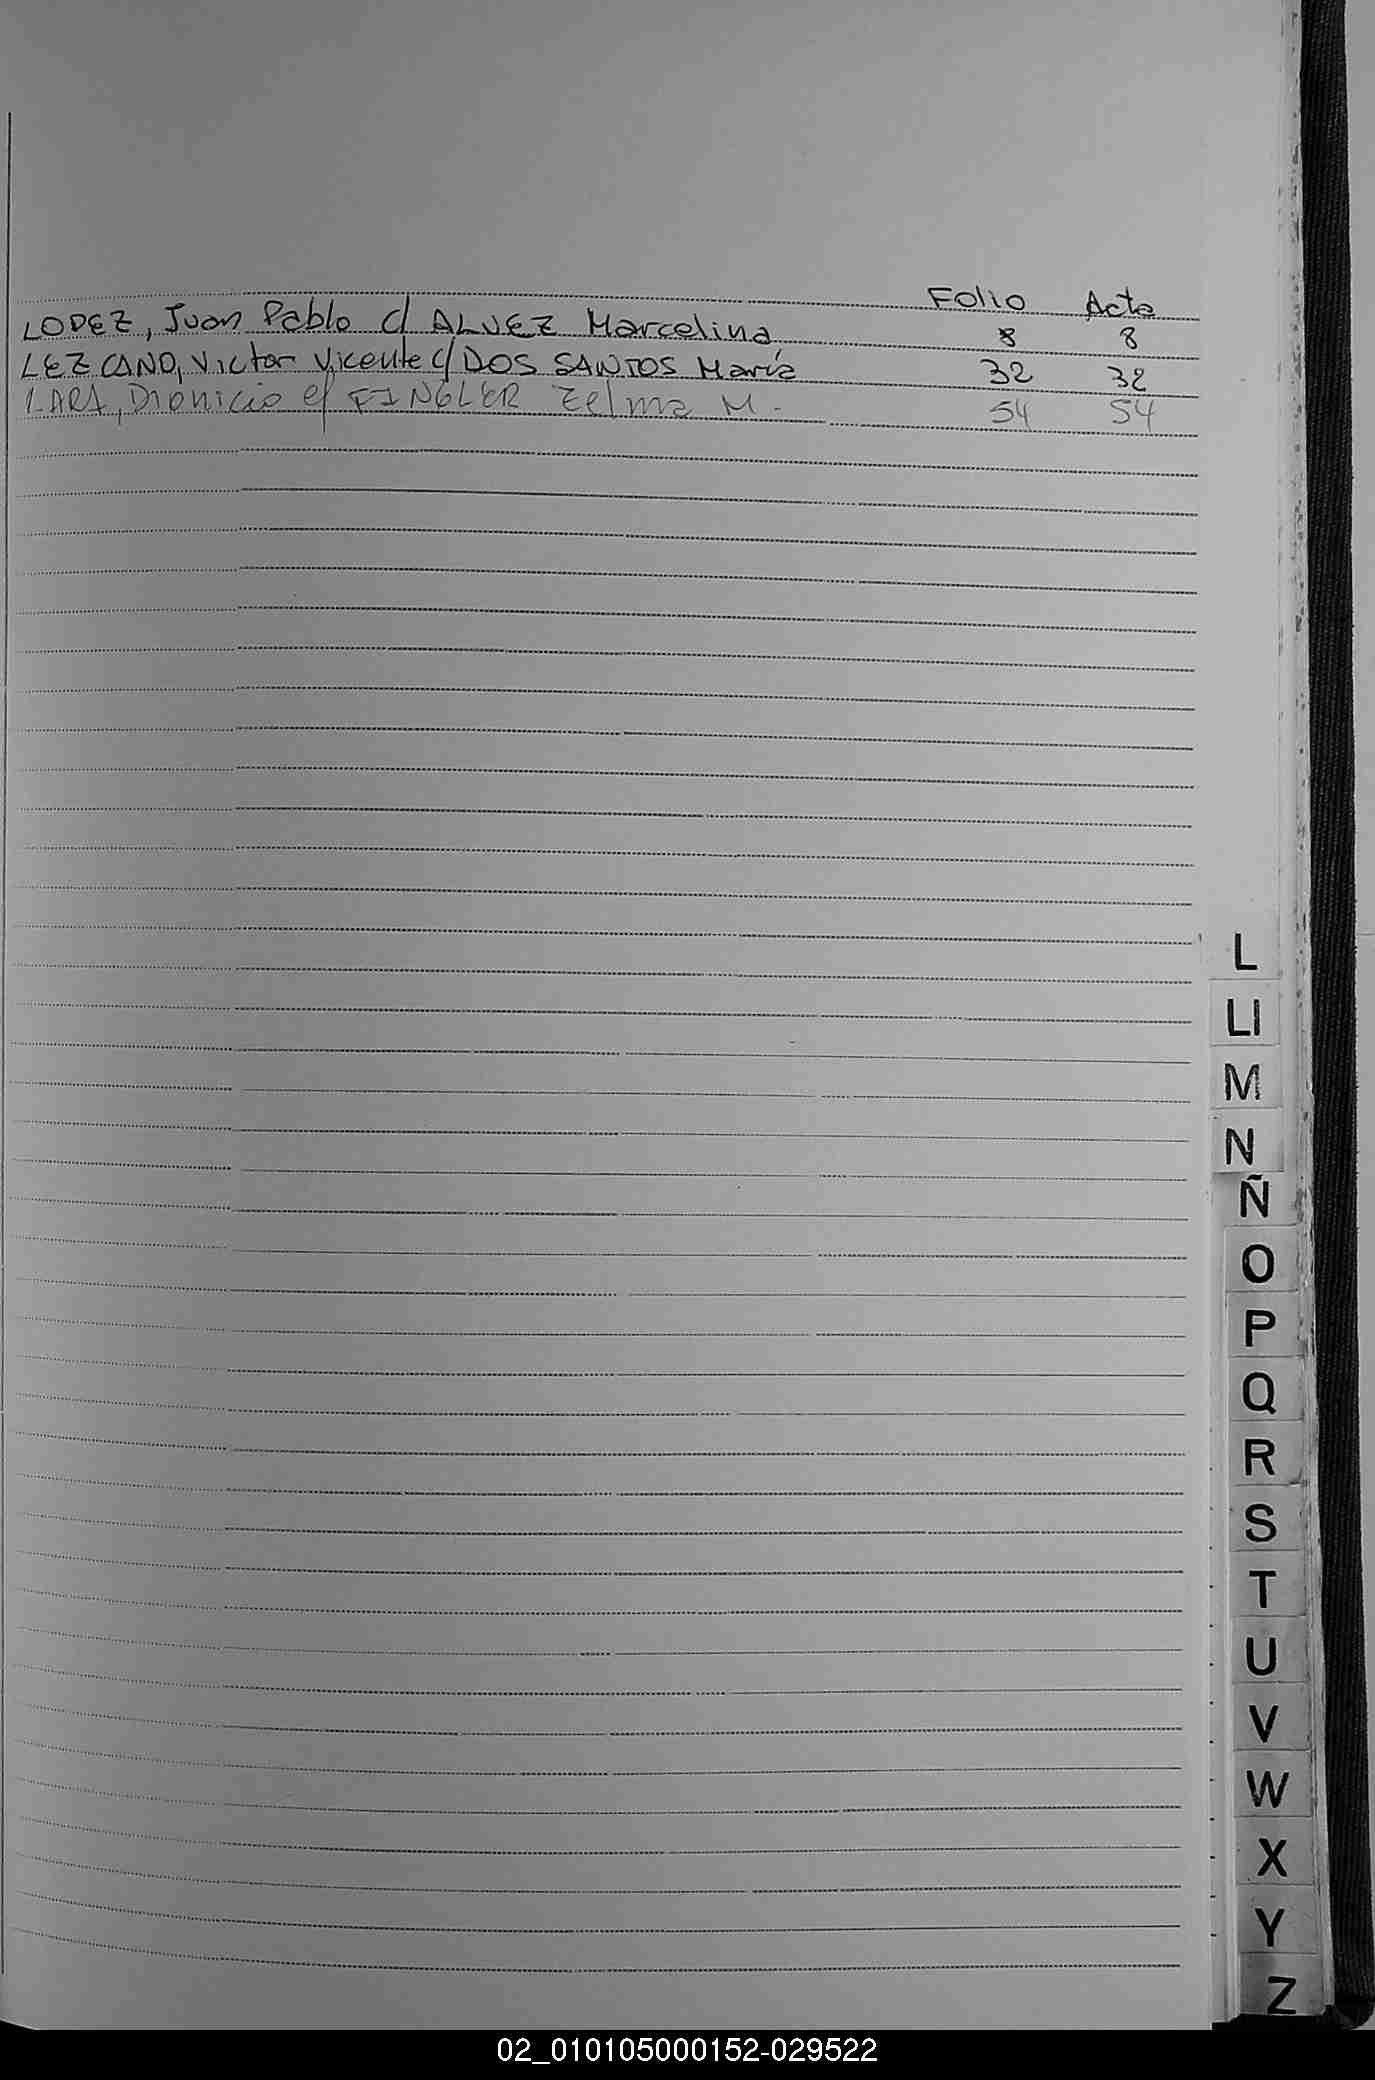 Folio Acta
LOPEZ, Juan Pablo c/ ALVEZ Marcelina 8 8
LEZCANO, Victor Vicente c/ DOS SANTOS María 32 32
LARA, Dionicio c/ FINGLER Zelma M. 54 54
L
Ll
M
N
Ñ
O
P
Q
R
S
T
U
V
W
X
Y
Z
02_010105000152-029522